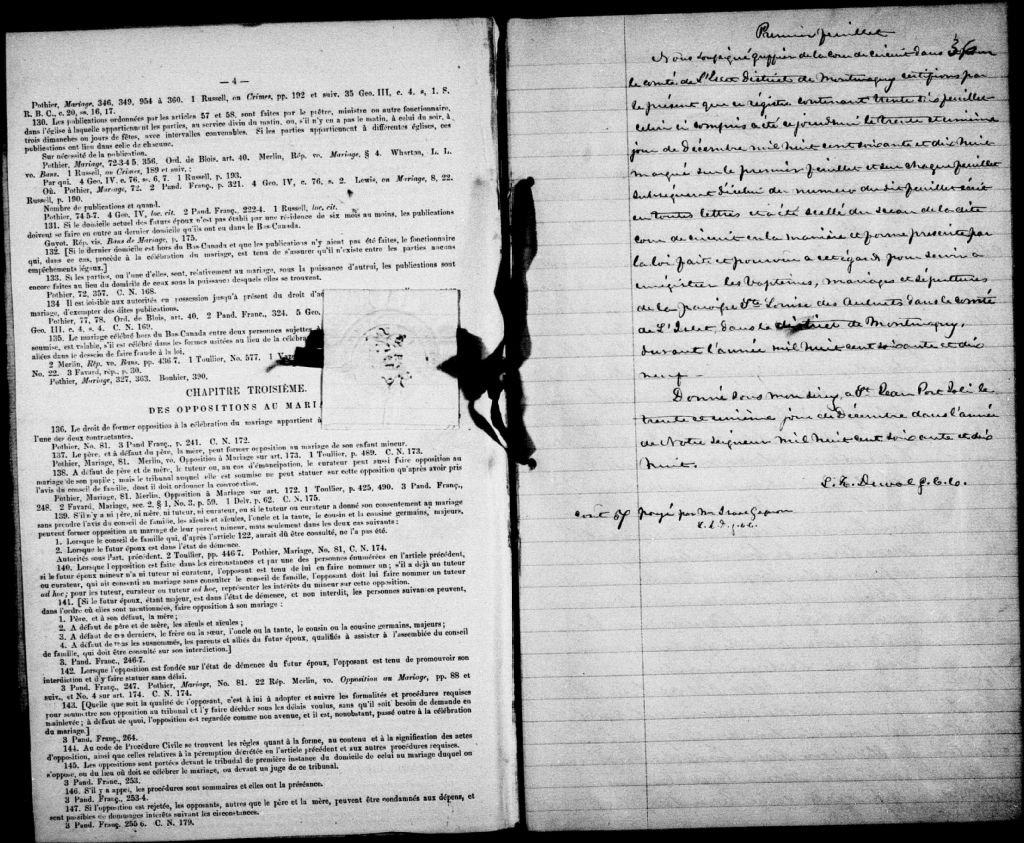 — 4 —
Pothier, Mariage, 346, 349, 954 à 360. 1 Russell, on Crimes, pp. 192 et suiv. 35 Geo. III, c. 4, s, 1. S.
R. B. C., c. 20, ss. 16, 17.
130. Les publications ordonnées par les articles 57 et 58, sont faites par le prêtre, ministre ou autre fonctionnaire,
dans l'église à laquelle appartiennent les parties, au service divin du matin, ou, s'il n'y en a pas le matin, à celui du soir, à
trois dimanches ou jours de fêtes, avec intervalles convenables. Si les parties appartiennent à différentes églises, ces
publications ont lieu dans celle de chacune.
Sur nécessité de la publication.
Pothier, Mariage, 72-3-4 5, 356. Ord. de Blois, art. 40. Merlin, Rép. vo. Mariage, § 4. Wharton, L. L.
vo. Bans. 1 Russell, on Crimes, 189 et suiv. :
Par qui. 4 Geo. IV, c. 76, ss. 6, 7. 1 Russell, p. 193.
Où. Pothier, Mariage, 72. 2 Pand. Franç., p. 321. 4 Geo. IV, c. 76, s. 2. Lewis, on Mariage, 8, 22.
Russell, p. 190.
Nombre de publications et quand.
Pothier, 74 5-7. 4 Geo. IV, loc. cit. 2 Pand. Franç., 222-4. 1 Russell, loc. cit.
131. Si le domicile actuel des futurs époux n'est pas établi par une résidence de six mois au moins, les publications
doivent se faire en outre au dernier domicile qu'ils ont eu dans le Bas-Canada.
Guyot, Rép. vis. Bans de Mariage, p. 175.
132. [Si le dernier domicile est hors du Bas-Canada et que les publications n'y aient pas été faites, le fonctionnaire
qui, dans ce cas, procède à la célébration du mariage, est tenu de s'assurer qu'il n'existe entre les parties aucuns
empêchements légaux.]
133. Si les parties, ou l'une d'elles, sont, relativement au mariage, sous la puissance d'autrui, les publications sont
encore faites au lieu du domicile de ceux sous la puissance desquels elles se trouvent.
Pothier, 72, 357. C. N. 168.
134 Il est loisible aux autorités en possession jusqu'à présent du droit d'ac
mariage, d'exempter des dites publications.
Pothier, 77, 78. Ord. de Blois, art. 40. 2 Pand. Franc., 324. 5 Geo.
Geo. III. c. 4, s. 4. C. N. 169.
135. Le mariage célébré hors du Bas-Canada entre deux personnes sujettes à
soumise, est valable, s'il est célébré dans les formes usitées au lieu de la célébra
aliées dans le dessein de faire fraude à la loi.
2 Merlin, Rép. vo. Bans, pp. 436-7. 1 Toullier, No. 577. 1
No. 22. 3 Favard, rép., p. 30.
Pothier, Mariage, 327, 363. Bouhier, 390.
CHAPITRE TROISIÈME.
DES OPPOSITIONS AU MARI
136. Le droit de former opposition à la célébration du mariage appartient à
l'une des deux contractantes.
Pothier, No. 81. 3 Pand Franç., p. 241. C. N. 172.
137. Le père, et à défaut du père, la mère, peut former opposition au mariage de son enfant mineur.
Pothier, Mariage, 81. Merlin, vo. Opposition à Mariage sur art. 173. 1 Toullier, p. 489. C. N. 173.
138. A défaut de père et de mère, le tuteur ou, au cas d'émancipation, le curateur peut aussi faire opposition au
mariage de son pupile ; mais le tribunal auquel elle est soumise ne peut statuer sur cette opposition qu'après avoir pris
l'avis du conseil de famille, dont il doit ordonner la convocation.
Pothier, Mariage, 81. Merlin, Opposition à Mariage sur art. 172. 1 Toullier, p. 425, 490. 3 Pand. Franç.,
248. 2 Favard, Mariage, sec. 2, § 1, No. 3, p. 59. 1 Delv. p. 62. C. N. 175.
139. S'il n'y a ni père, ni mère, ni tuteur, ni curateur, ou si le tuteur ou curateur a donné son consentement au mariage
sans prendre l'avis du conseil de famille, les aïeuls et aïeules, l'oncle et la tante, le cousin et la cousine germains, majeurs,
peuvent former opposition au mariage de leur parent mineur, mais seulement dans les deux cas suivants :
1. Lorsque le conseil de famille qui, d'après l'article 122, aurait dû être consulté, ne l'a pas été.
2. Lorsque le futur époux est dans l'état de démence.
Autorités sous l'art. précédent. 2 Toullier, pp. 446 7. Pothier, Mariage, No. 81, C. N. 174.
140. Lorsque l'opposition est faite dans les circonstances et par une des personnes énumérées en l'article précédent,
si le futur époux mineur n'a ni tuteur ni curateur, l'opposant est tenu de lui en faire nommer un ; s'il a déjà un tuteur
ou curateur, qui ait consenti au mariage sans consulter le conseil de famille, l'opposant doit lui faire nommer un tuteur
ad hoc ; pour les tuteur, curateur ou tuteur ad hoc, représenter les intérêts du mineur sur cette opposition.
141. [Si le futur époux, étant majeur, est dans l'état de démence, et non interdit, les personnes suivantes peuvent,
dans l'ordre où elles sont mentionnées, faire opposition à son mariage :
1. Père, et à son défaut, la mère ;
2. A défaut de père et de mère, les aïeuls et aïeules ;
3. A défaut de ces derniers, le frère ou la sœur, l'oncle ou la tante, le cousin ou la cousine germains, majeurs ;
4. A défaut de tous les susnommés, les parents et alliés du futur époux, qualifiés à assister à l'assemblée du conseil
de famille, qui doit être consulté sur son interdiction.]
3. Pand. Franç., 246-7.
142. Lorsque l'opposition est fondée sur l'état de démence du futur époux, l'opposant est tenu de promouvoir son
interdiction et d'y faire statuer sans délai.
3 Pand. Franç., 247. Pothier, Mariage, No. 81. 22 Rép. Merlin, vo. Opposition au Mariage, pp. 88 et
suiv., et No. 4 sur art. 174. C. N. 174.
143. [Quelque que soit la qualité de l'opposant, c'est à lui à adopter et suivre les formalités et procédures requises
pour soumettre son opposition au tribunal et l'y faire décider sous les délais voulus, sans qu'il soit besoin de demande en
mainlevée ; à défaut de quoi, l'opposition est regardée comme non avenue, et il est, nonobstant, passé outre à la célébration
du mariage.]
3 Pand. Franç., 264.
144. Au code de Procédure Civile se trouvent les règles quant à la forme, au contenu et à la signification des actes
d'opposition, ainsi que celles relatives à la péremption décrétée en l'article précédent et aux autres procédures requises.
145. Les oppositions sont portées devant le tribunal de première instance du domicile de celui au mariage duquel on
s'oppose, ou du lieu où doit se célébrer le mariage, ou devant un juge de ce tribunal.
3 Pand. Franc., 253.
146. S'il y a appel, les procédures sont sommaires et elles ont la préséance.
3 Pand. Franç., 253-4.
147. Si l'opposition est rejetée, les opposants, autres que le père et la mère, peuvent être condamnés aux dépens, et
sont passibles de dommages intérêts suivant les circonstances.
3 Pand. Franç., 255 6. C. N. 179.
Premier feuillet
36
Nous soussigné greffier de la cour de circuit dans et pour
le comté de L'Islet District de Montmagny certifions par
le présent que ce régistre contenant trente six feuillets
celui ci compris a été ce jourd'hui le trente et unième
jour de Décembre mil huit cent soixante et dix huit
marqué sur le premier feuillet et sur chaque feuillet
subséquent d'icelui du numéro du dit feuillet écrit
en toutes lettres et a été scellé du sceau de la dite
cour de circuit en la manière et forme prescrite par
la loi fait et pourvu à cet égard pour servir à
enrégistrer les Baptêmes, mariages et sépultures
de la paroisse Ste Louise des Aulnets dans le comté
de L'Islet, dans le district de Montmagny,
durant l'année mil huit cent soixante et dix
neuf —
Donné sous mon seing, à St Jean Port Joli le
trente et unième jour de Décembre dans l'année
de Notre Seigneur mil huit cent soixante et dix
huit.
G.C.C.
payé par Mr Gagnon